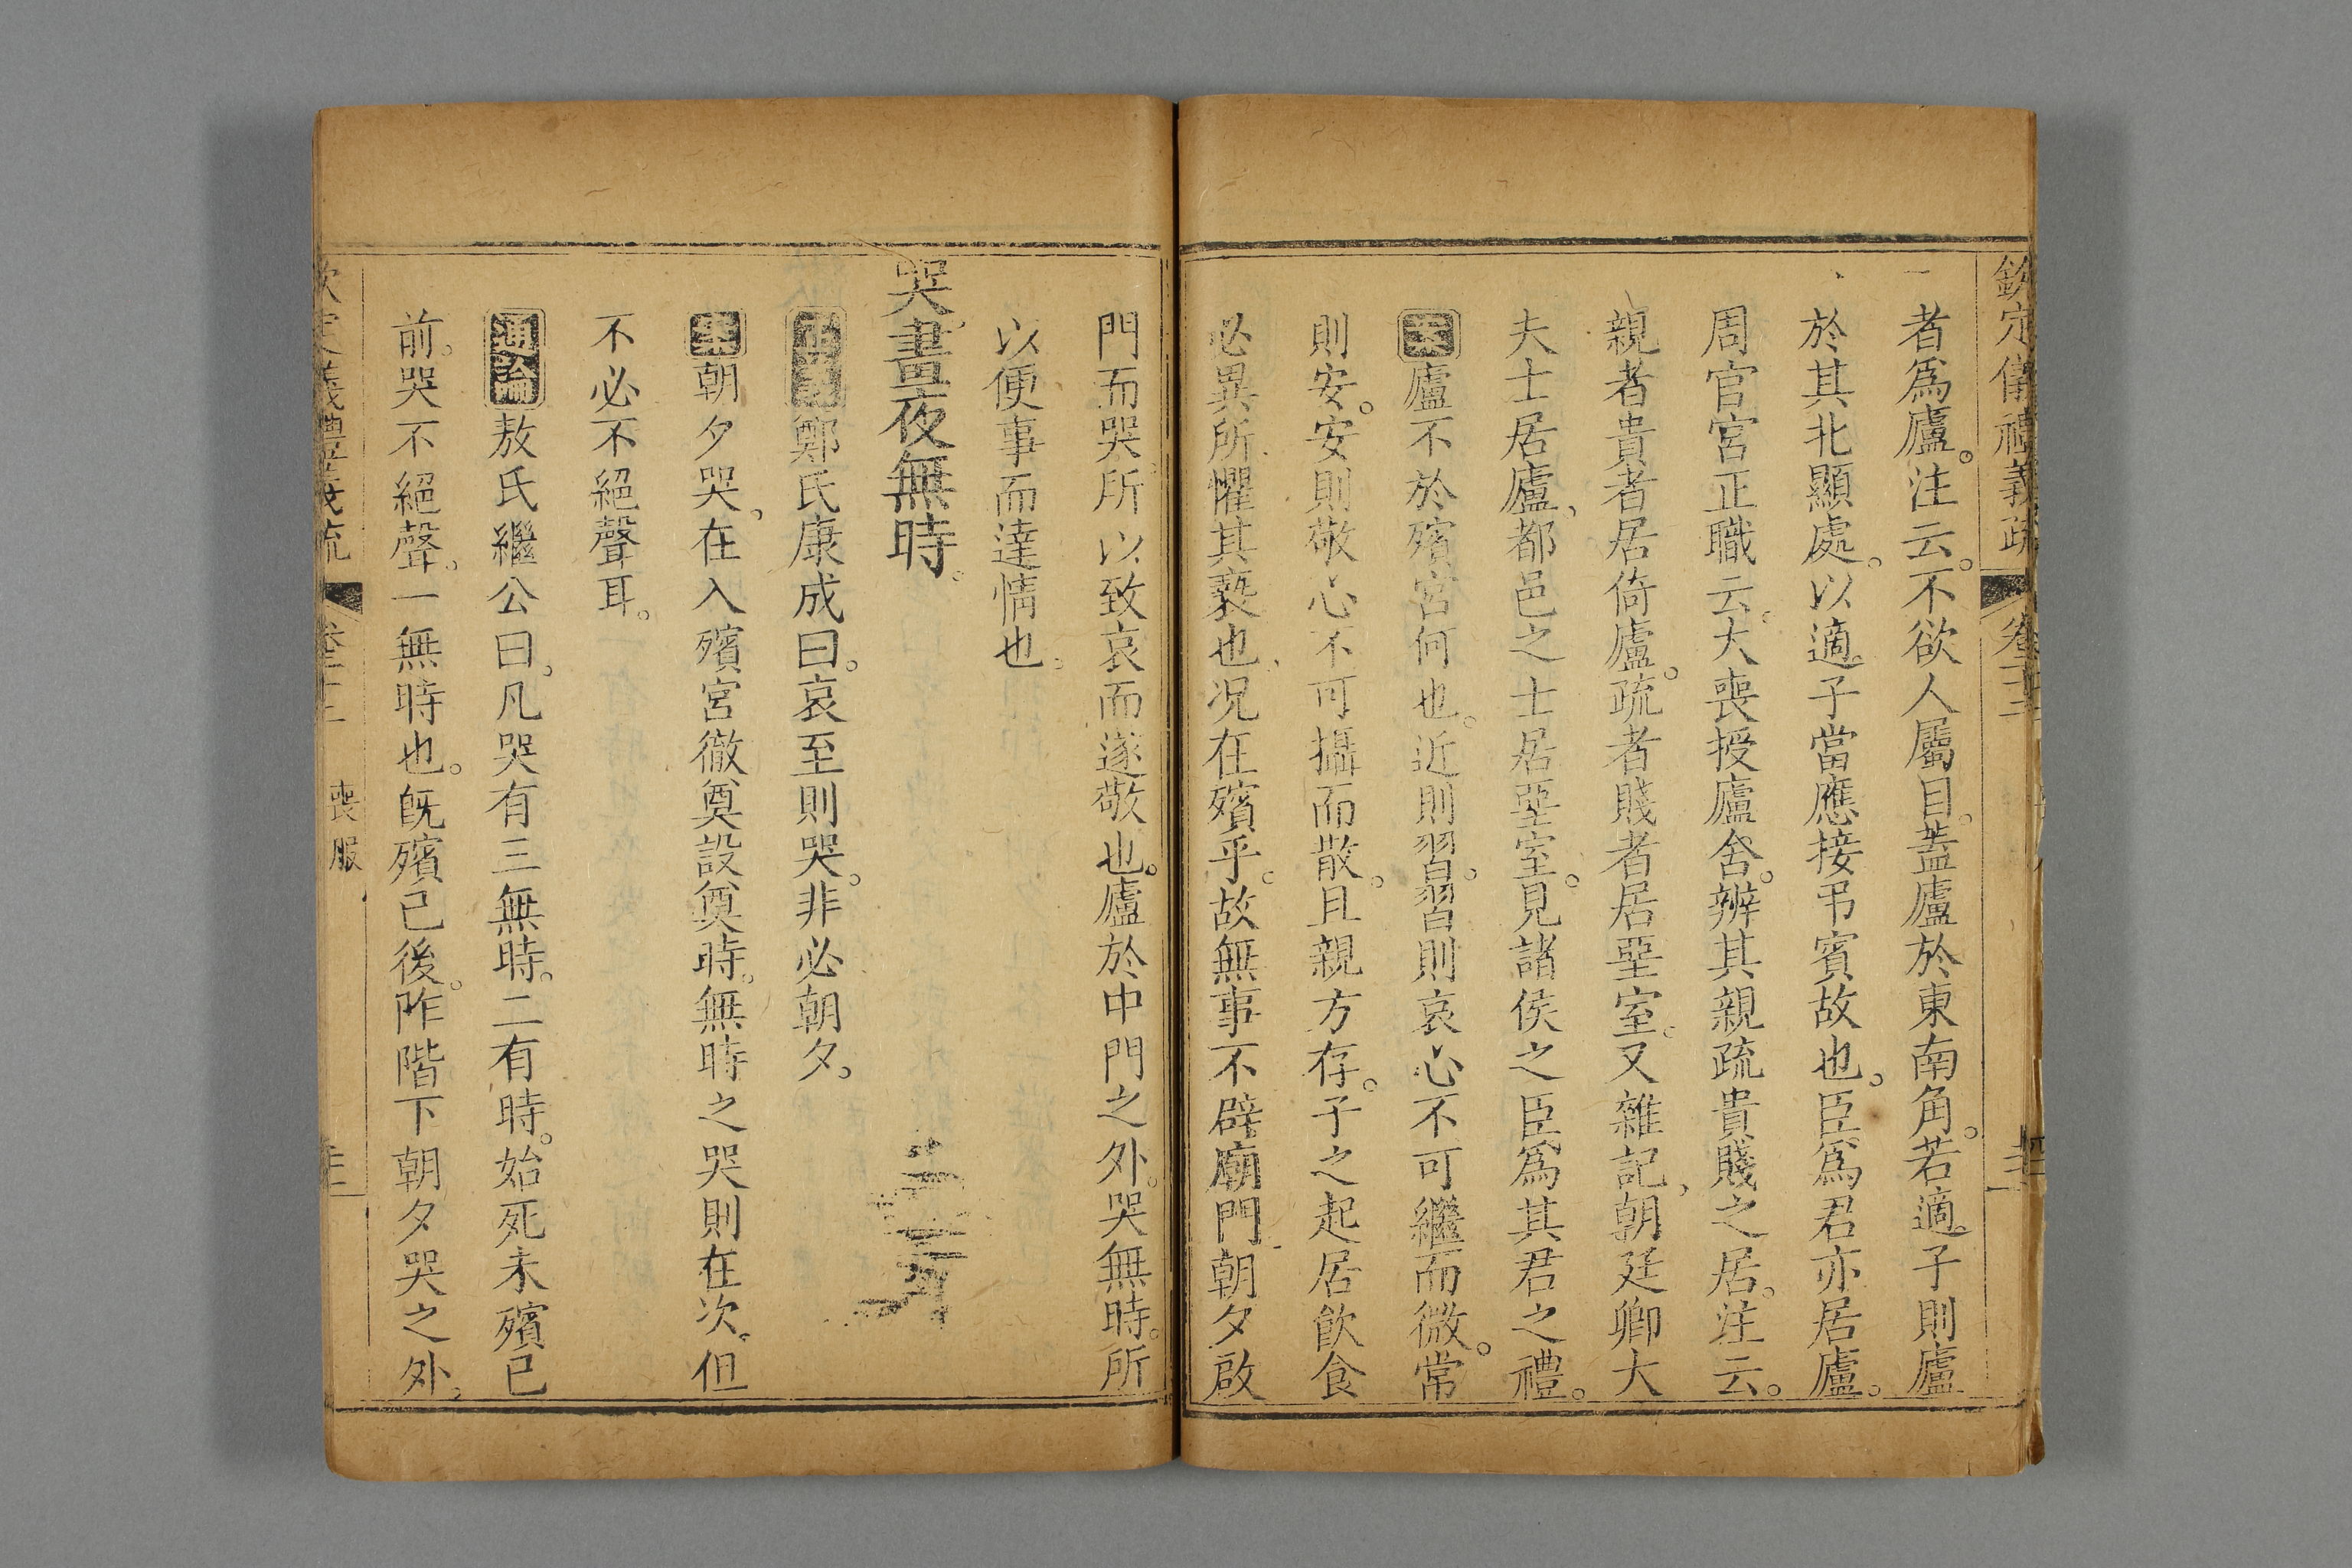 欽定儀禮義疏 卷二十二
者爲廬。注云。不欲人屬目。蓋廬於東南角。若適子則廬
於其北顯處。以適子當應接弔賓故也。臣爲君亦居廬。
周官宮正職云。大喪授廬舍。辨其親疏貴賤之居。注云。
親者貴者居倚廬。疏者賤者居堊室。又雜記。朝廷卿大
夫士居廬。都邑之士居堊室。見諸侯之臣爲其君之禮。
案廬不於殯宮何也。近則習。習則哀心不可繼而微。常
則安。安則敬心不可攝而散。且親方存。子之起居飮食
必異所。懼其褻也。况在殯乎。故無事不辟廟門。朝夕啟
門而哭。所以致哀而遂敬也。廬於中門之外。哭無時。所
以便事而達情也。
哭晝夜無時。
正義鄭氏康成曰。哀至則哭。非必朝夕。
案朝夕哭。在入殯宮徹奠設奠時。無時之哭則在次。但
不必不絕聲耳。
通論敖氏繼公曰。凡哭有三無時。二有時。始死未殯已
前。哭不絕聲。一無時也。旣殯已後。阼階下朝夕哭之外。
欽定儀禮義疏 卷二十二 喪服